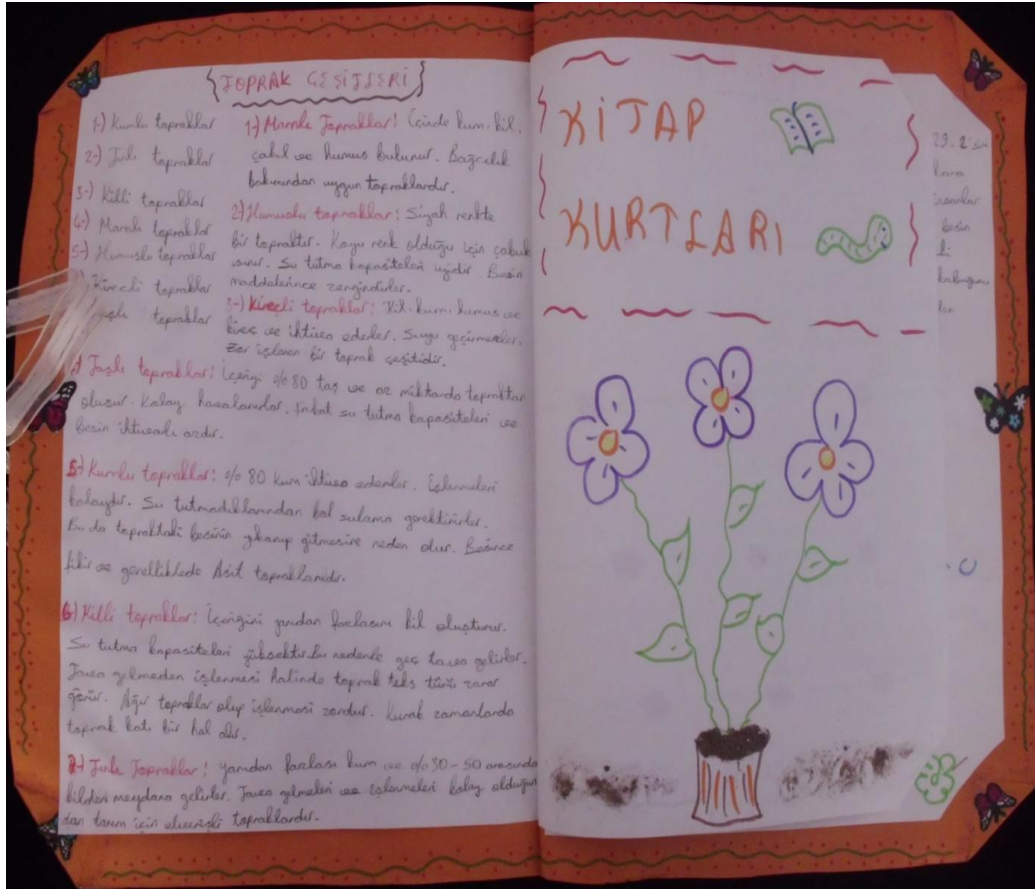 TOPRAK ÇEŞİTLERİ
1-) Kumlu topraklar
2-) Tınlı topraklar
3-) Killi topraklar
4-) Marnlı topraklar
5-) Humuslu topraklar
Kireçli topraklar
topraklar
1-) Marnlı Topraklar! İçinde kum. kil.
çakıl ve humus bulunur. Bağcılık
bakımından uygun topraklardır.
2-) Humuslu topraklar! Siyah renkte
bir topraktır. Koyu renk olduğu için çabuk
ısınır. Su tutma kapasiteleri iyidir. Besin
maddelerince zengindirler.
3-) Kireçli topraklar! Kil. kum. humus ve
kireç ve ihtiva ederler. Suyu geçirmezler.
Zor işlenen bir toprak çeşitidir.
Taşlı topraklar! İçeriği %80 taş ve az miktarda topraktan
oluşur. Kolay havalanırlar. Fakat su tutma kapasiteleri ve
besin azdır.
5-) Kumlu topraklar! %80 kum ihtiva ederler. İşlenmeleri
kolaydır. Su tutmadıklarından bol sulama gerektirirler.
Bu da topraktaki besinin yıkanıp gitmesine neden olur. Besince
fakir ve genelliklede Asit topraklarıdır.
6-) Killi topraklar! İçeriğini yarıdan fazlasını kil oluşturur.
Su tutma kapasiteleri yüksektir. Bu nedenle geç tava gelirler.
Tava gelmeden işlenmesi halinde toprak teks türü zarar
görür. Ağır topraklar olup işlenmesi zordur. Kurak zamanlarda
toprak katı bir hal alır.
Tınlı Topraklar! yarıdan fazlası kum ve %30-50 arasında
kilden meydana gelirler. Tava gelmeleri ve işlenmeleri kolay olduğun
dan tarım için elverişli topraklardır.
KİTAP
KURTLARI
insanlar
besin